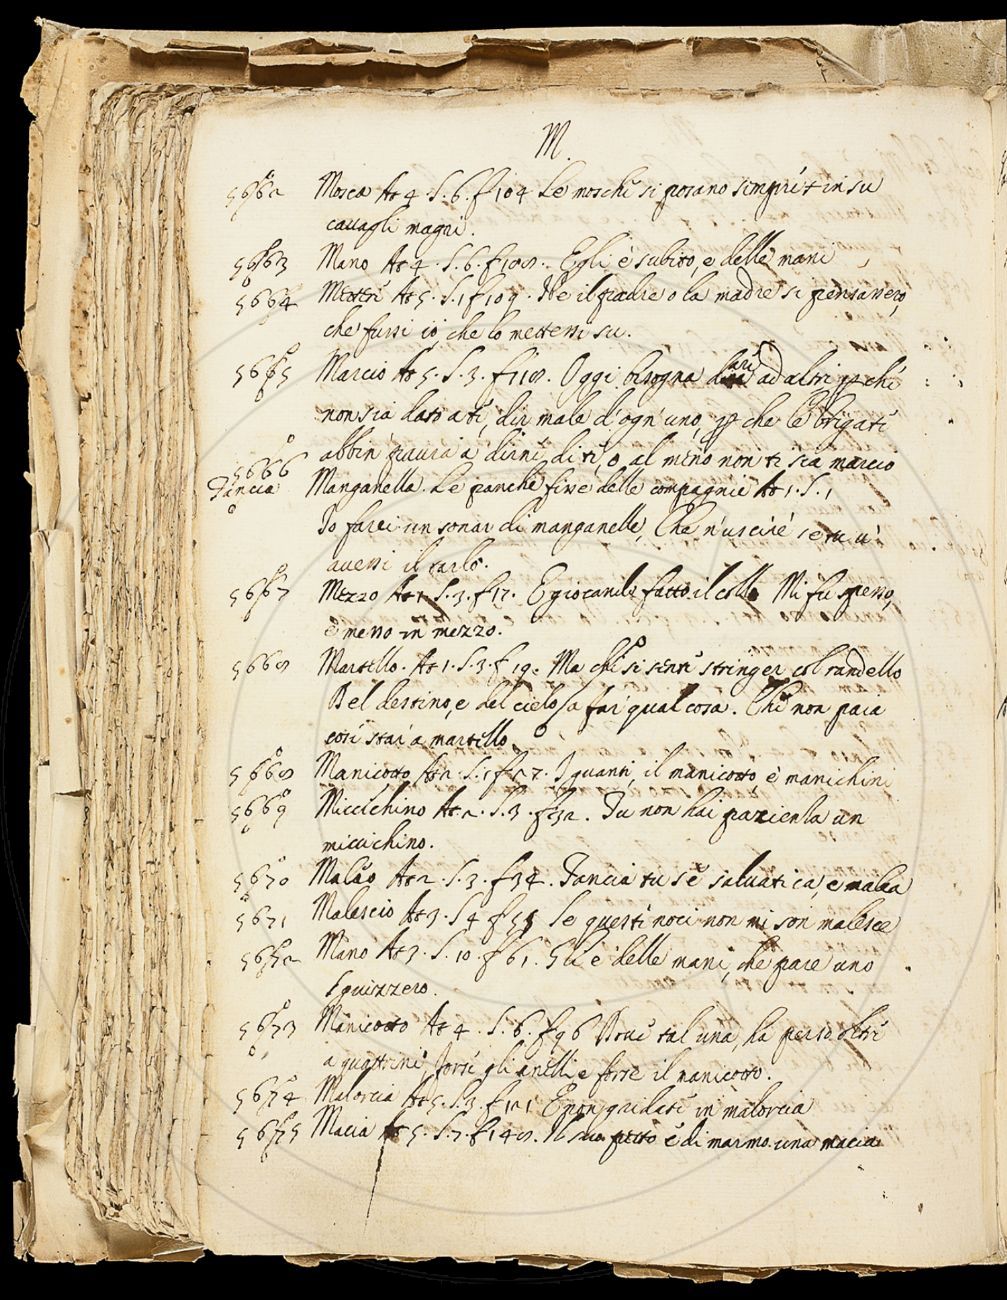 M.
5662 Mosca At 4. S. 6. f 104 Le mosche si posano sempre in su
cauagli magri.
5663 Mano At 4. S. 6. f 108. Egli è subito, e delle mani
5664 At 5. S. 1 f 109. Ne il padre o la madre si pensavero,
che fussi io, che lo mettessi su.
5665 Marcio At 5. S. 3. f 118. Oggi bisogna dare ad altri perche
non sia dato a te, dir male d'ogn'uno, perche le brigate
abbin paura a dirne di te, o al meno non ti sia marcio
5666 Manganella. Le panche fisse delle compagnie At 1. S. 1
Tancia
Io farei un sonar di manganelle, Che n'uscire' se tu
auessi il tarlo.
5667 Mezzo At 1. S. 3. f 17. E giocando fatto il collo Mi fu spesso,
e messo in mezzo.
5668 Martello. At 1. S. 3. f 19. Ma chi si sente stringer col randello
Del destino, e del cielo a far qual cosa. Che non paia
così stai a martello
5668 Manicotto At 2. S. 1 f 27. I guanti, il manicotto e manichini
5669 Miccichino At 2. S. 3. f 32. Tu non hai pazienza un
miccichino.
5670 At 2. S. 3. f 34. Tancia tu sè saluatica, e
5671 Malescio At 3. S 4 f 55 Se queste noci non mi son malesce
5672 Mano At 3. S. 10. f 61. Gli è delle mani, che pare uno
Squizzero.
5673 Manicotto At 4. S. 6. f 96 tal una, ha perso oltre
a quattrini, forse gli anelli e forse il manicotto.
5674 Malorcia At 5. S. 3. f 121 E non gridate in malorcia
5675 Macia At 5. S. 7. f 148. Il suo petto è di marmo una macia